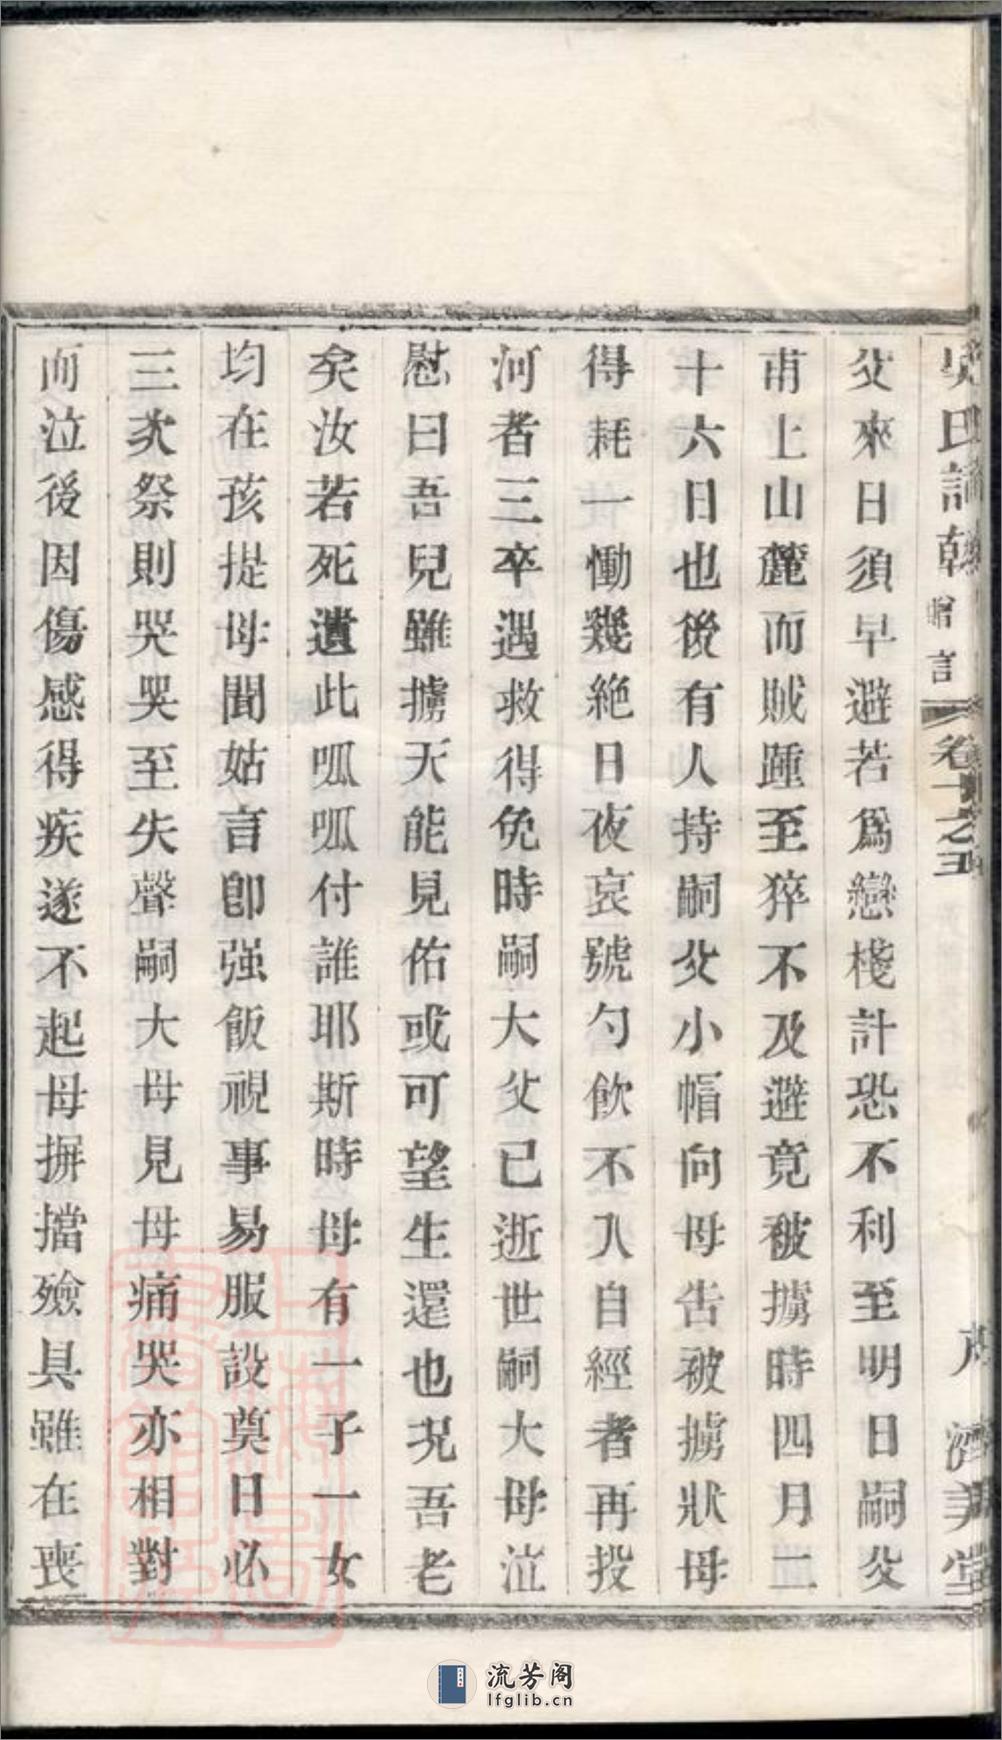 氏譜 贈言 卷十之五 濟美堂
父來日須早避若爲戀棧計恐不利至明日嗣父
甫上山麓而賊踵至猝不及避竟被擄時四月二
十六日也後有人持嗣父小帽向母告被擄狀母
得耗一慟幾絶日夜哀號勺飲不入自經者再投
河者三卒遇救得免時嗣大父已逝世嗣大母泣
慰曰吾兒雖擄天能見佑或可望生還也況吾老
矣汝若死遺此呱呱付誰耶斯時母有一子一女
均在孩提母聞姑言卽强飯視事易服設奠日必
三次祭則哭哭至失聲嗣大母見母痛哭亦相對
而泣後因傷感得疾遂不起母摒擋殮具雖在喪
流芳阁
lfglib.cn